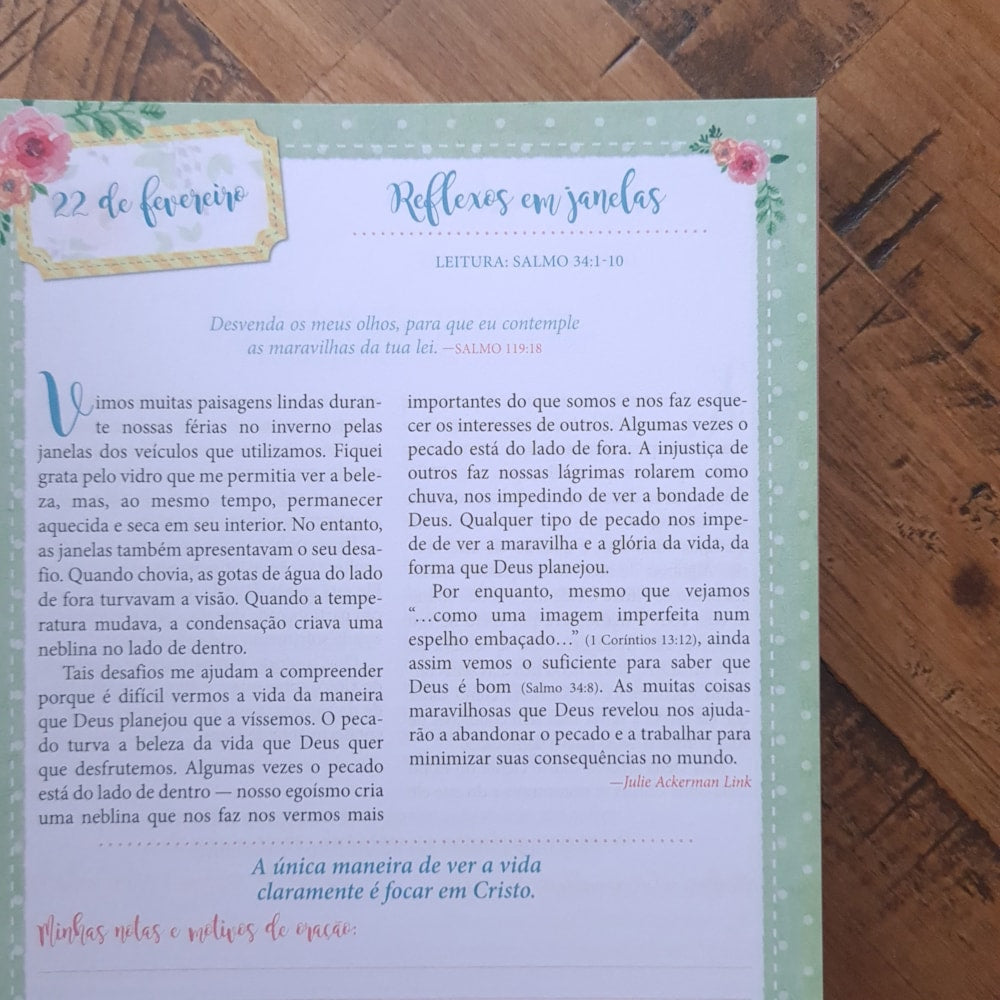 22 de fevereiro
Reflexos em janelas
LEITURA: SALMO 34:1-10
Desvenda os meus olhos, para que eu contemple
as maravilhas da tua lei. —SALMO 119:18
Vimos muitas paisagens lindas duran-
te nossas férias no inverno pelas
janelas dos veículos que utilizamos. Fiquei
grata pelo vidro que me permitia ver a bele-
za, mas, ao mesmo tempo, permanecer
aquecida e seca em seu interior. No entanto,
as janelas também apresentavam o seu desa-
fio. Quando chovia, as gotas de água do lado
de fora turvavam a visão. Quando a tempe-
ratura mudava, a condensação criava uma
neblina no lado de dentro.
Tais desafios me ajudam a compreender
porque é difícil vermos a vida da maneira
que Deus planejou que a víssemos. O peca-
do turva a beleza da vida que Deus quer
que desfrutemos. Algumas vezes o pecado
está do lado de dentro — nosso egoísmo cria
uma neblina que nos faz nos vermos mais
importantes do que somos e nos faz esque-
cer os interesses de outros. Algumas vezes o
pecado está do lado de fora. A injustiça de
outros faz nossas lágrimas rolarem como
chuva, nos impedindo de ver a bondade de
Deus. Qualquer tipo de pecado nos impe-
de de ver a maravilha e a glória da vida, da
forma que Deus planejou.
Por enquanto, mesmo que vejamos
“…como uma imagem imperfeita num
espelho embaçado…” (1 Coríntios 13:12), ainda
assim vemos o suficiente para saber que
Deus é bom (Salmo 34:8). As muitas coisas
maravilhosas que Deus revelou nos ajuda-
rão a abandonar o pecado e a trabalhar para
minimizar suas consequências no mundo.
—Julie Ackerman Link
A única maneira de ver a vida
claramente é focar em Cristo.
Minhas notas e motivos de oração: